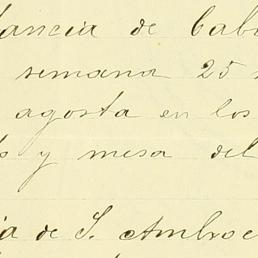 tancia de Cab
semana 25
agosta en los
y mesa del
de S. Ambro